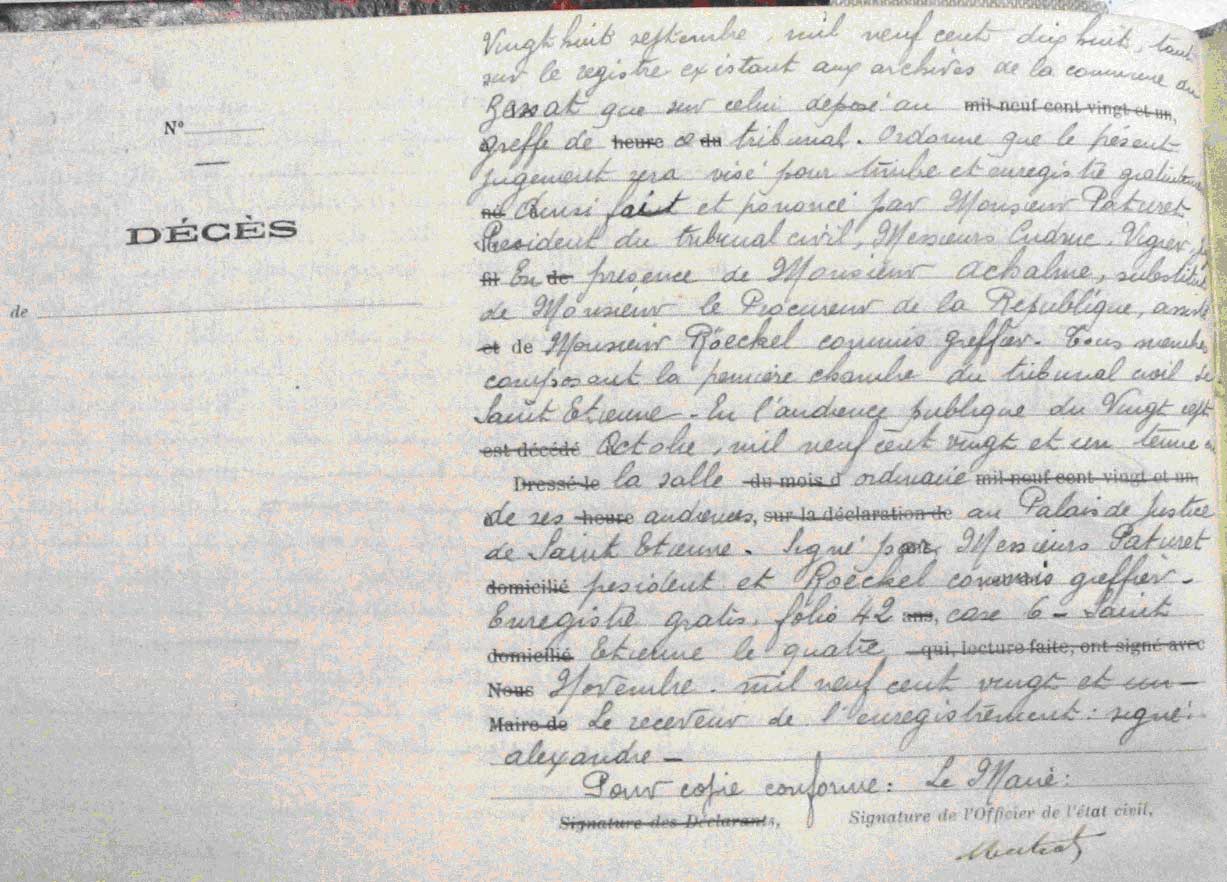 Nº
DÉCÈS
de
Vingt huit septembre, mil neuf cent dix huit, tant
sur le registre existant aux archives de la commune de
que sur celui déposé au mil neuf cent vingt et un,
greffe de heure ce du tribunal. Ordonne que le présent
jugement sera visé pour timbre et enregistré
né Ainsi fait et prononcé par Monsieur Paturet
Président du tribunal civil, Messieurs Vigier,
fil En de presence de Monsieur Achalme, substitut
de Monsieur le Procureur de la République, assisté
et de Monsieur Röeckel commis greffier. Tous membres
composant la première chambre du tribunal civil de
Saint Etienne - En l'audience publique du Vingt sept
est décédé Octobre, mil neuf cent vingt et un tenue
Dressé le la salle du mois d ordinaire mil neuf cent vingt et un
de ses heure audiences, sur la déclaration de au Palais de Justice
de Saint Etienne. Signé par Messieurs Paturet
domicilié president et Roëckel commis greffier.
Enregistré gratis, folio 42 ans, case 6 - Saint
domicilié Etienne le quatre qui, lecture faite, ont signé avec
Nous Novembre. mil neuf cent vingt et un -
Maire de Le receveur de l'enregistrement: signé:
alexandre -
Pour copie conforme: Le Maire:
Signature des Déclarants, Signature de l'Officier de l'état civil,